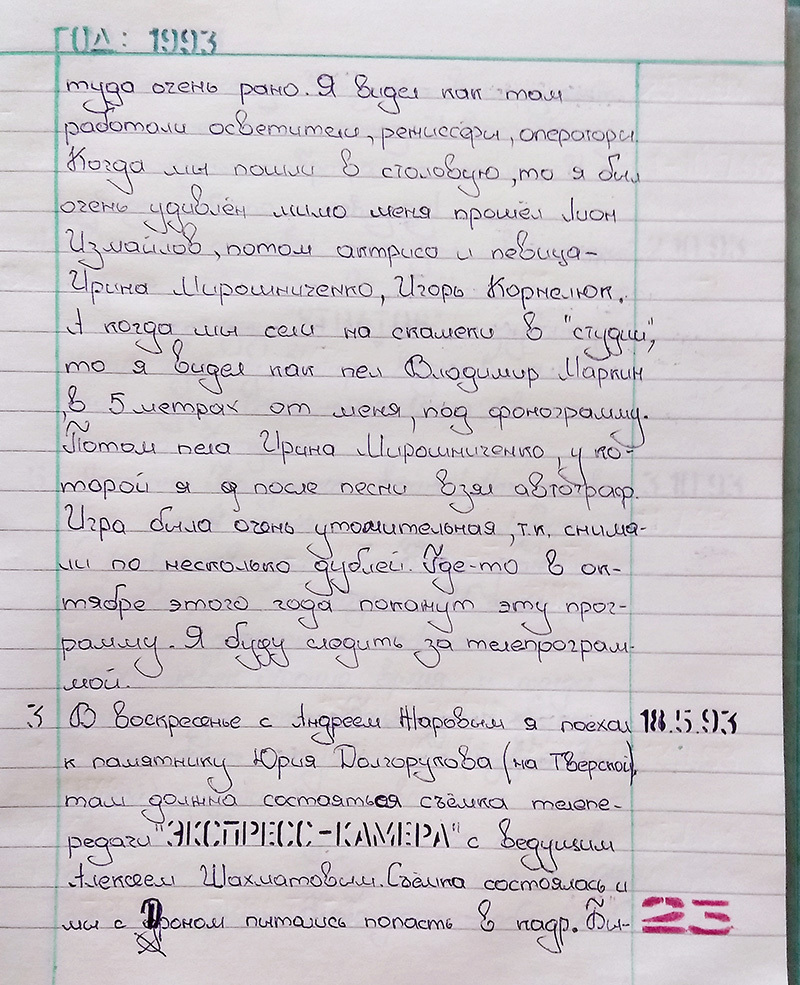 ГОД: 1993
туда очень рано. Я видел как там
работали осветители, режиссёры, операторы.
Когда мы пошли в столовую, то я был
очень удивлён мимо меня прошёл Лион
Измайлов, потом актриса и певица-
Ирина Мирошниченко, Игорь Корнелюк.
А когда мы сели на скамеки в "студии",
то я видел как пел Владимир Маркин
, в 5 метрах от меня, под фонограмму.
Потом пела Ирина Мирошниченко, у ко-
торой я после песни взял автограф.
Игра была очень утомительная, т.к. снима-
ли по несколько дублей. Где-то в ок-
тябре этого года покажут эту прог-
рамму. Я буду следить за телепрограм-
мой.
3 В воскресенье с Андреем Жаровым я поехал 18.5.93
к памятнику Юрия Долгорукова (на Тверской),
там должна состояться съёмка телепе-
редачи "ЭКСПРЕСС-КАМЕРА" с ведущим
Алексеем Шахматовым. Съёмка состоялась и
мы с Дроном пытались попасть в кадр. Бы-
23